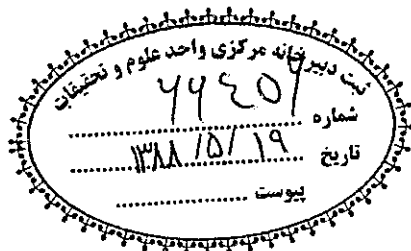 ثبت دبیرخانه مرکزی واحد علوم و تحقیقات
شماره ۶۶۴۵۱
تاریخ ۱۳۸۸/۵/۱۹
پیوست